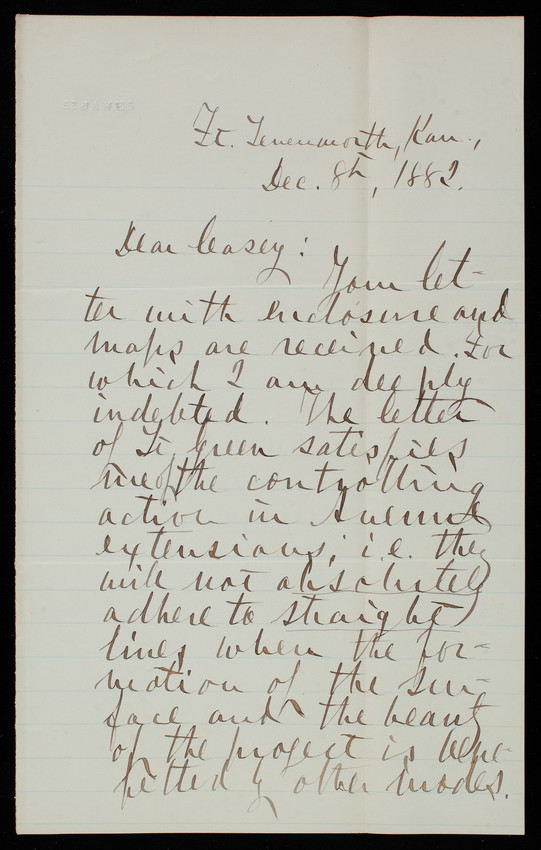 Ft. Levenworth, Kan.,
Dec. 8th, 1882.
Dear Casey:
Your let-
ter with enclosure and
maps are received. For
which I am deeply
indebted. The letter
of Lt. Green satisfies
me of the controlling
action in Avenue
extensions; i.e. they
will not absolutely
adhere to straight
lines when the for-
mation of the sur-
face and the beauty
of the project is bene-
fitted by other modes.